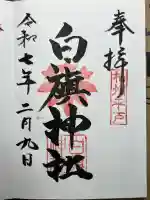 奉拝
白旗神社
令和七年二月九日